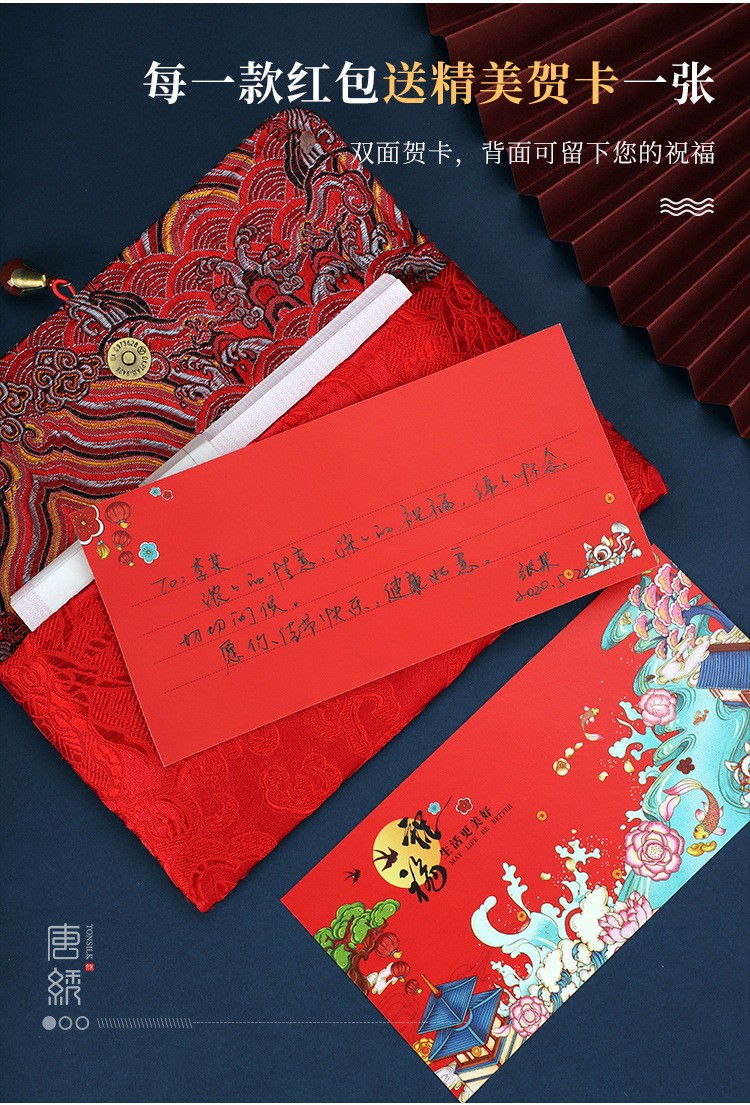 每一款红包送精美贺卡一张
双面贺卡，背面可留下您的祝福
To：李某
浓浓的情意，深深的祝福，绵绵怀念，
切切问候。
愿你：佳节快乐，健康如意。
祝福
生活更美好
MAY LIFE BE BETTER
唐绣
TONSILK